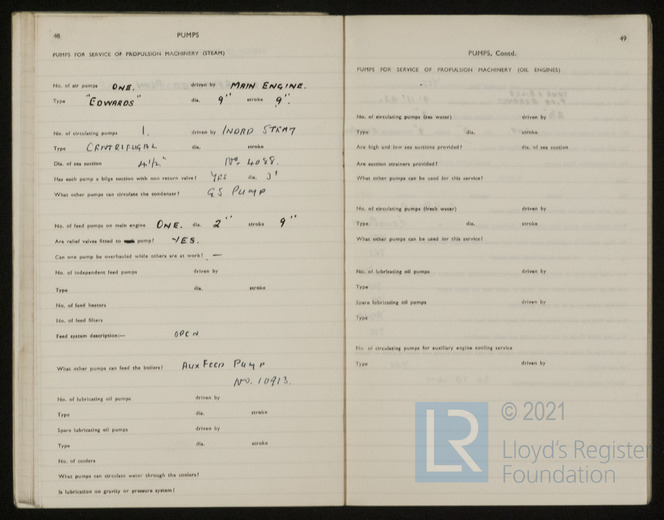 48
PUMPS
PUMPS FOR SERVICE OF PROPULSION MACHINERY (STEAM)
No. of air pumps ONE. driven by MAIN ENGINE.
Type "EDWARDS" dia. 9" stroke 9".
No. of circulating pumps 1. driven by STEAM
Type CENTRIFUGAL dia. stroke
Dia. of sea suction 4½" No. 4088.
Has each pump a bilge suction with non return valve? YES dia. 3"
What other pumps can circulate the condenser? GS PUMP
No. of feed pumps on main engine ONE. dia. 2" stroke 9"
Are relief valves fitted to pump? YES.
Can one pump be overhauled while others are at work? —
No. of independent feed pumps driven by
Type dia. stroke
No. of feed heaters
No. of feed filters
Feed system description:— OPEN
What other pumps can feed the boilers? AUX FEED PUMP
No. 10913.
No. of lubricating oil pumps driven by
Type dia. stroke
Spare lubricating oil pumps driven by
Type dia. stroke
No. of coolers
What pumps can circulate water through the coolers?
Is lubrication on gravity or pressure system?
49
PUMPS, Contd.
PUMPS FOR SERVICE OF PROPULSION MACHINERY (OIL ENGINES)
No. of circulating pumps (sea water) driven by
Type dia. stroke
Are high and low sea suctions provided? dia. of sea suction
Are suction strainers provided?
What other pumps can be used for this service?
No. of circulating pumps (fresh water) driven by
Type dia. stroke
What other pumps can be used for this service?
No. of lubricating oil pumps driven by
Type
Spare lubricating oil pumps driven by
Type
No. of circulating pumps for auxiliary engine cooling service
Type driven by
LR
© 2021
Lloyd's Register
Foundation